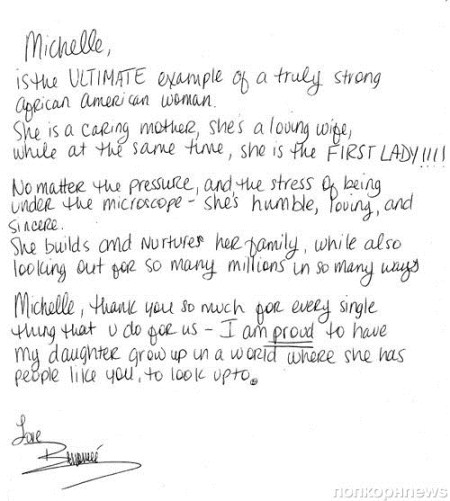 Michelle,
is the ULTIMATE example of a truly strong
african american woman.
She is a caring mother, she's a loving wife,
while at the same time, she is the FIRST LADY!!!!
No matter the pressure, and the stress of being
under the microscope - she's humble, loving, and
sincere.
She builds and nurtures her family, while also
looking out for so many millions in so many ways
Michelle, thank you so much for every single
thing that u do for us - I am proud to have
my daughter grow up in a world where she has
people like you, to look up to.
Love
Beyoncé
попкорнnews